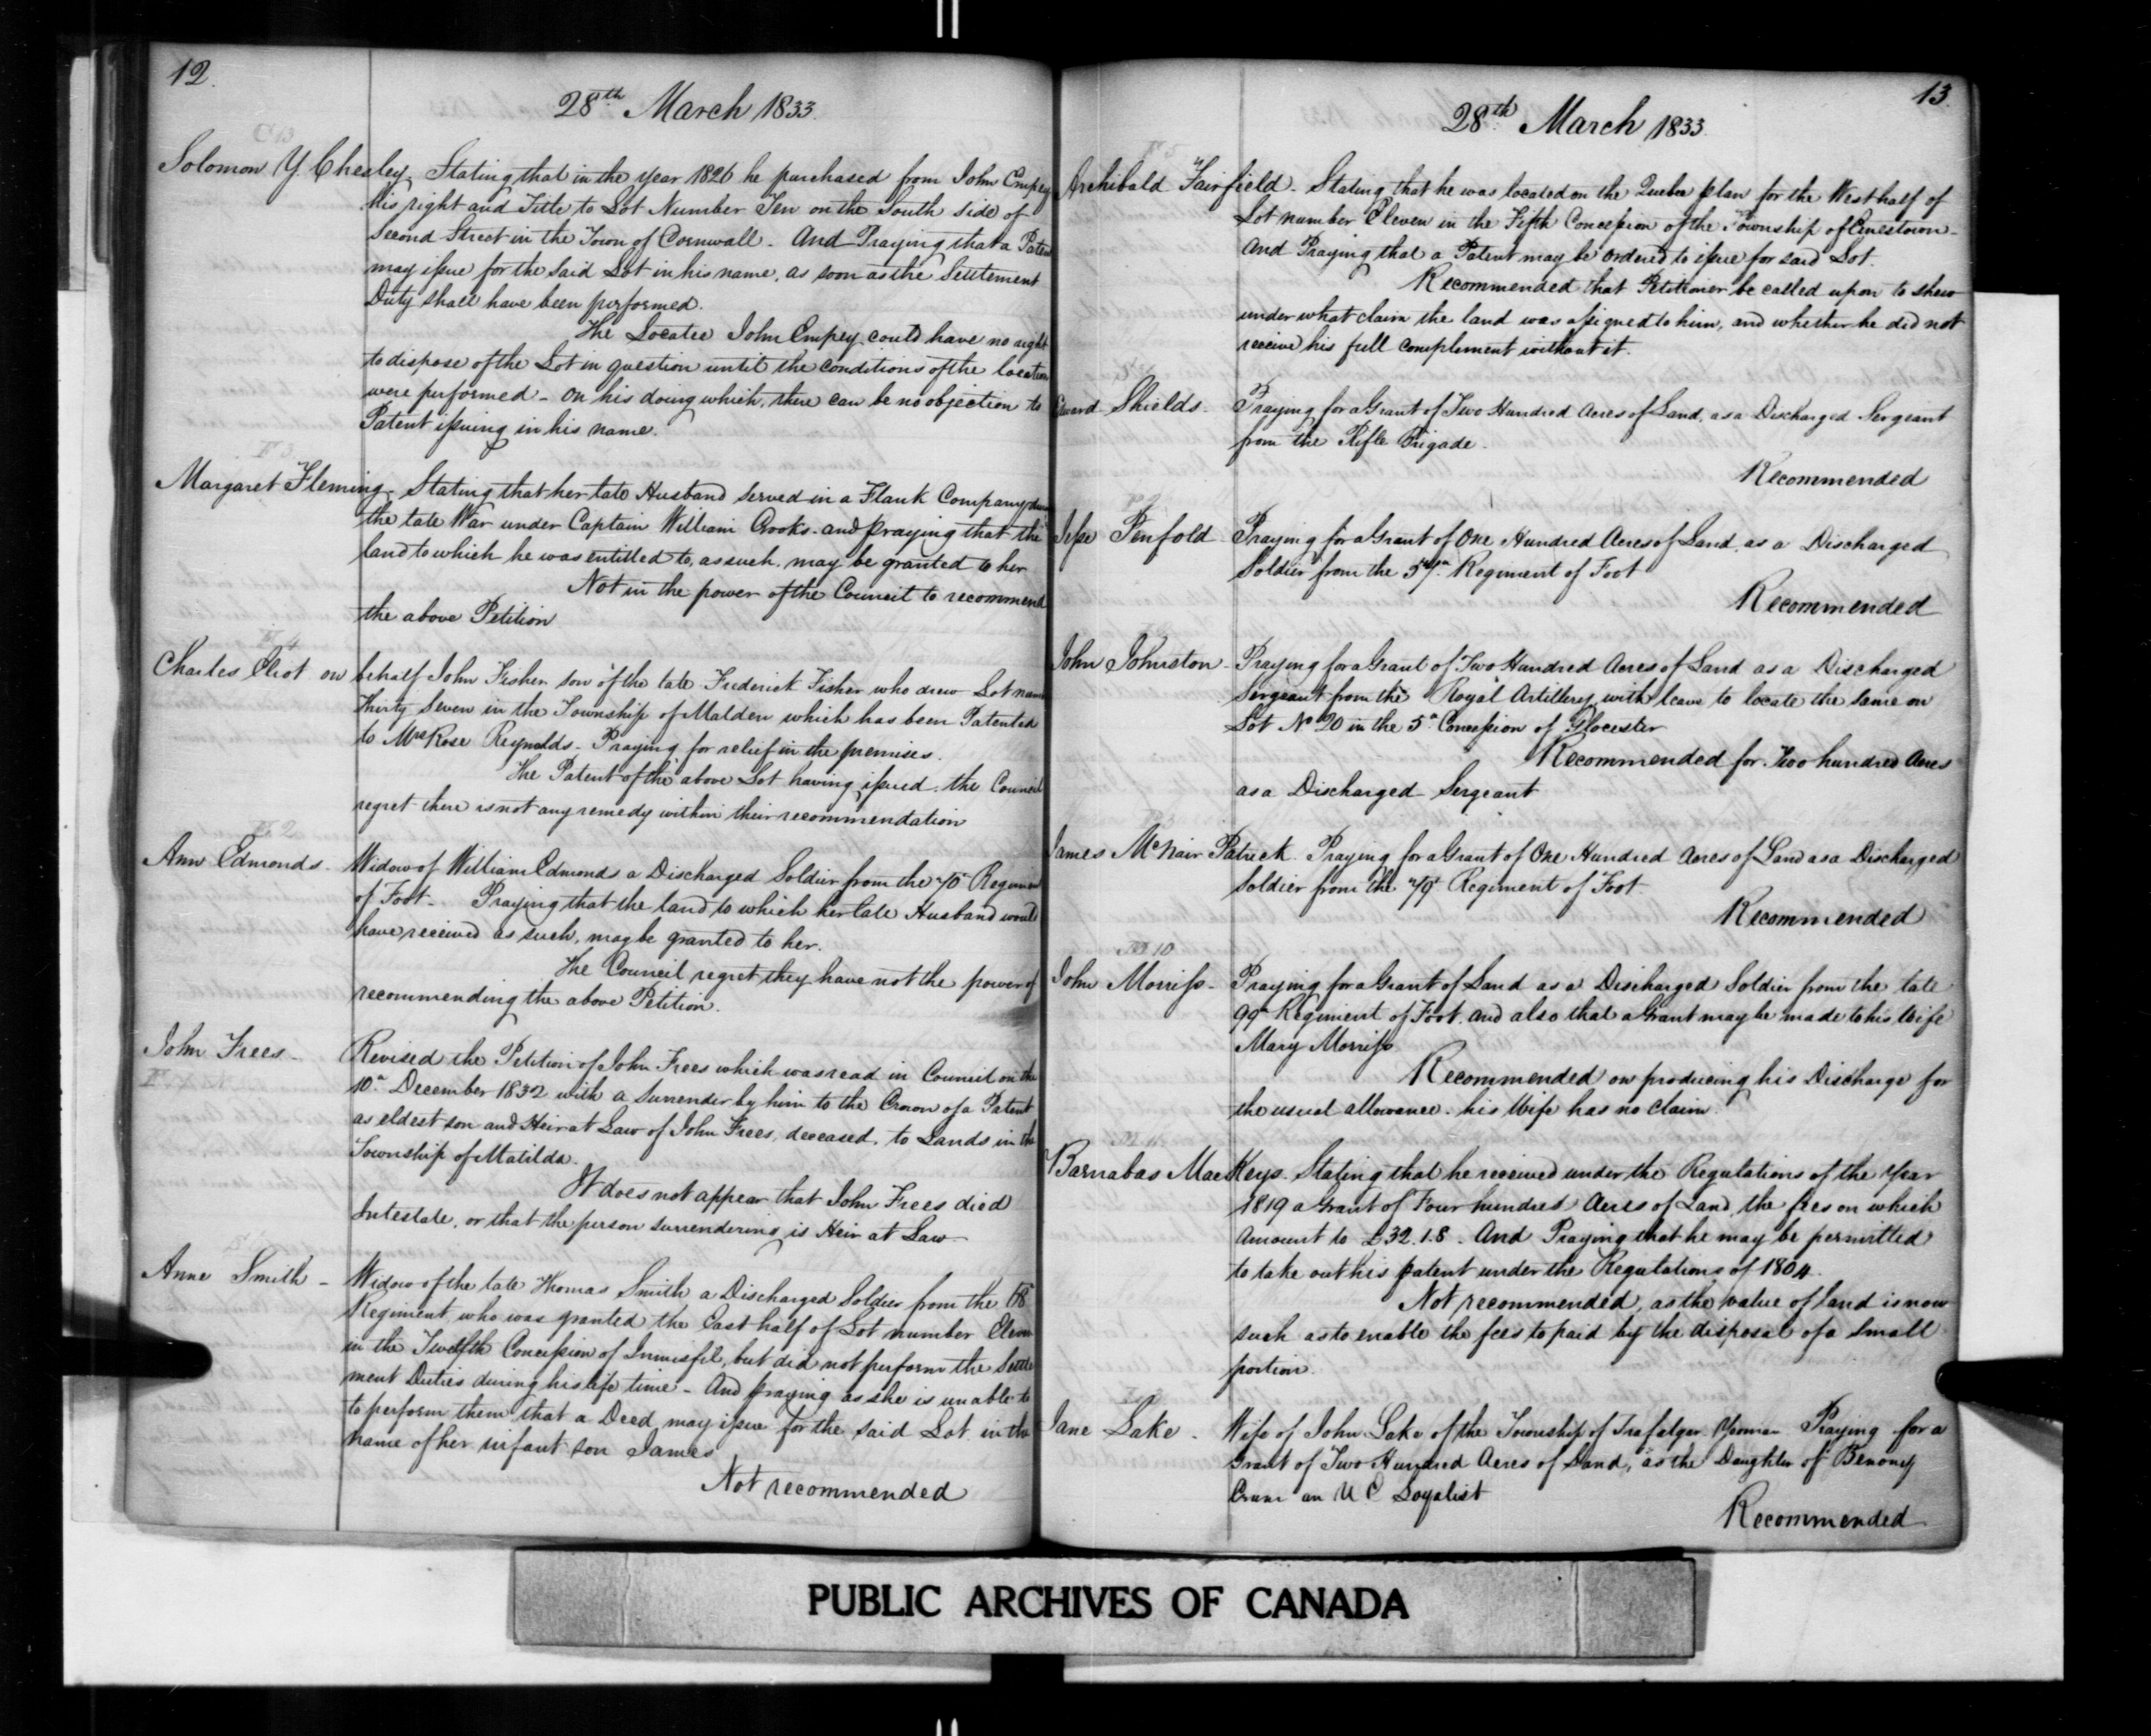 12.
28th March 1833.
C 13
Solomon Y. Chesley. Stating that in the year 1826 he purchased from John Empey
his right and Title to Lot Number Ten on the South side of
Second Street in the Town of Cornwall. And Praying that a Patent
may issue for the said Lot in his name, as soon as the Settlement
Duty shall have been performed.
The Locatee John Empey could have no right
to dispose of the Lot in question until the conditions of the location
were performed - On his doing which, there can be no objection to
Patent issuing in his name.
F 3
Margaret Fleming. Stating that her late Husband served in a Flank Company during
the late War under Captain William Crooks - and praying that the
land to which he was entitled to, as such, may be granted to her
Not in the power of the Council to recommend
the above Petition
F 4
Charles Eliot on behalf John Fisher son of the late Frederick Fisher who drew Lot
Thirty Seven in the Township of Malden which has been Patented
to Mrs Rose Reynolds - Praying for relief in the premises.
The Patent of the above Lot having issued, the Council
regret there is not any remedy within their recommendation
E 2
Ann Edmonds - Widow of William Edmonds a Discharged Soldier from the 70th Regiment
of Foot - Praying that the land to which her late Husband would
have received as such, may be granted to her.
The Council regret they have not the power of
recommending the above Petition.
John Frees - Revised the Petition of John Frees which was read in Council on the
10th December 1832 with a Surrender by him to the Crown of a Patent
as eldest son and Heir at Law of John Frees, deceased, to Lands in the
Township of Matilda.
It does not appear that John Frees died
Intestate, or that the person surrendering is Heir at Law
Anne Smith - Widow of the late Thomas Smith a Discharged Soldier from the 68th
Regiment, who was granted the East half of Lot number Eleven
in the Twelfth Concession of Innisfil, but did not perform the Settle
ment Duties during his life time - And praying as she is unable to
to perform them that a Deed may issue for the said Lot in the
name of her infant son James
Not recommended
13.
28th March 1833.
F 5
Archibald Fairfield - Stating that he was located on the Quebec plan for the West half of
Lot number Eleven in the Fifth Concession of the Township of Ernestown -
And Praying that a Patent may be ordered to issue for said Lot.
Recommended that Petitioner be called upon to shew
under what claim the land was assigned to him, and whether he did not
receive his full complement without it.
Edward Shields - Praying for a Grant of Two Hundred Acres of Land, as a Discharged Sergeant
from the Rifle Brigade.
Recommended
P 2
Jesse Penfold - Praying for a Grant of One Hundred Acres of Land, as a Discharged
Soldier from the 37th Regiment of Foot
Recommended
John Johnston - Praying for a Grant of Two Hundred Acres of Land as a Discharged
Sergeant from the Royal Artillery, with leave to locate the same on
Lot No 20 in the 5th Concession of Glocester
Recommended for Two hundred Acres
as a Discharged Sergeant
P 3
James McNair Patrick. Praying for a Grant of One Hundred Acres of Land as a Discharged
Soldier from the 79th Regiment of Foot
Recommended
M 10
John Morriss - Praying for a Grant of Land as a Discharged Soldier from the late
99th Regiment of Foot, and also that a Grant may be made to his Wife
Mary Morriss
Recommended on producing his Discharge for
the usual allowance. his Wife has no claim.
M 11
Barnabas MacKeys. Stating that he received under the Regulations of the Year
1819 a Grant of Four hundred Acres of Land, the fees on which
Amount to £32.1.8. And Praying that he may be permitted
to take out his patent under the Regulations of 1804.
Not recommended, as the value of land is now
such as to enable the fees to paid by the disposal of a small
portion.
Jane Lake - Wife of John Lake of the Township of Trafalgar Yeoman Praying for a
Grant of Two Hundred Acres of Land, as the Daughter of Benoney
Crum an U E Loyalist
Recommended
PUBLIC ARCHIVES OF CANADA